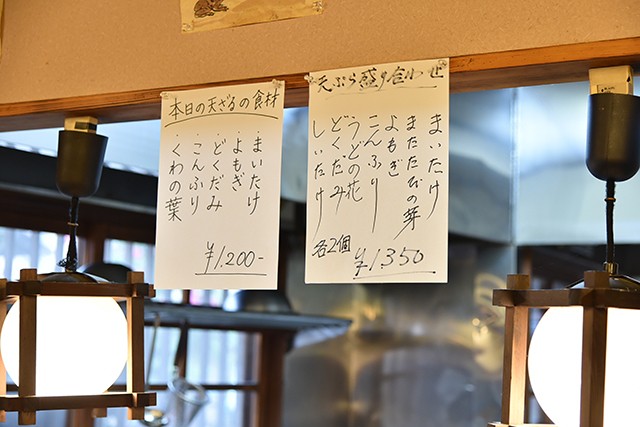 天ぷら盛り合わせ
まいたけ
またたびの芽
よもぎ
こんふり
うどの花
どくだみ
しいたけ
各2個
¥1,350
本日の天ざるの食材
・まいたけ
・よもぎ
・どくだみ
・こんふり
・くわの葉
¥1,200-